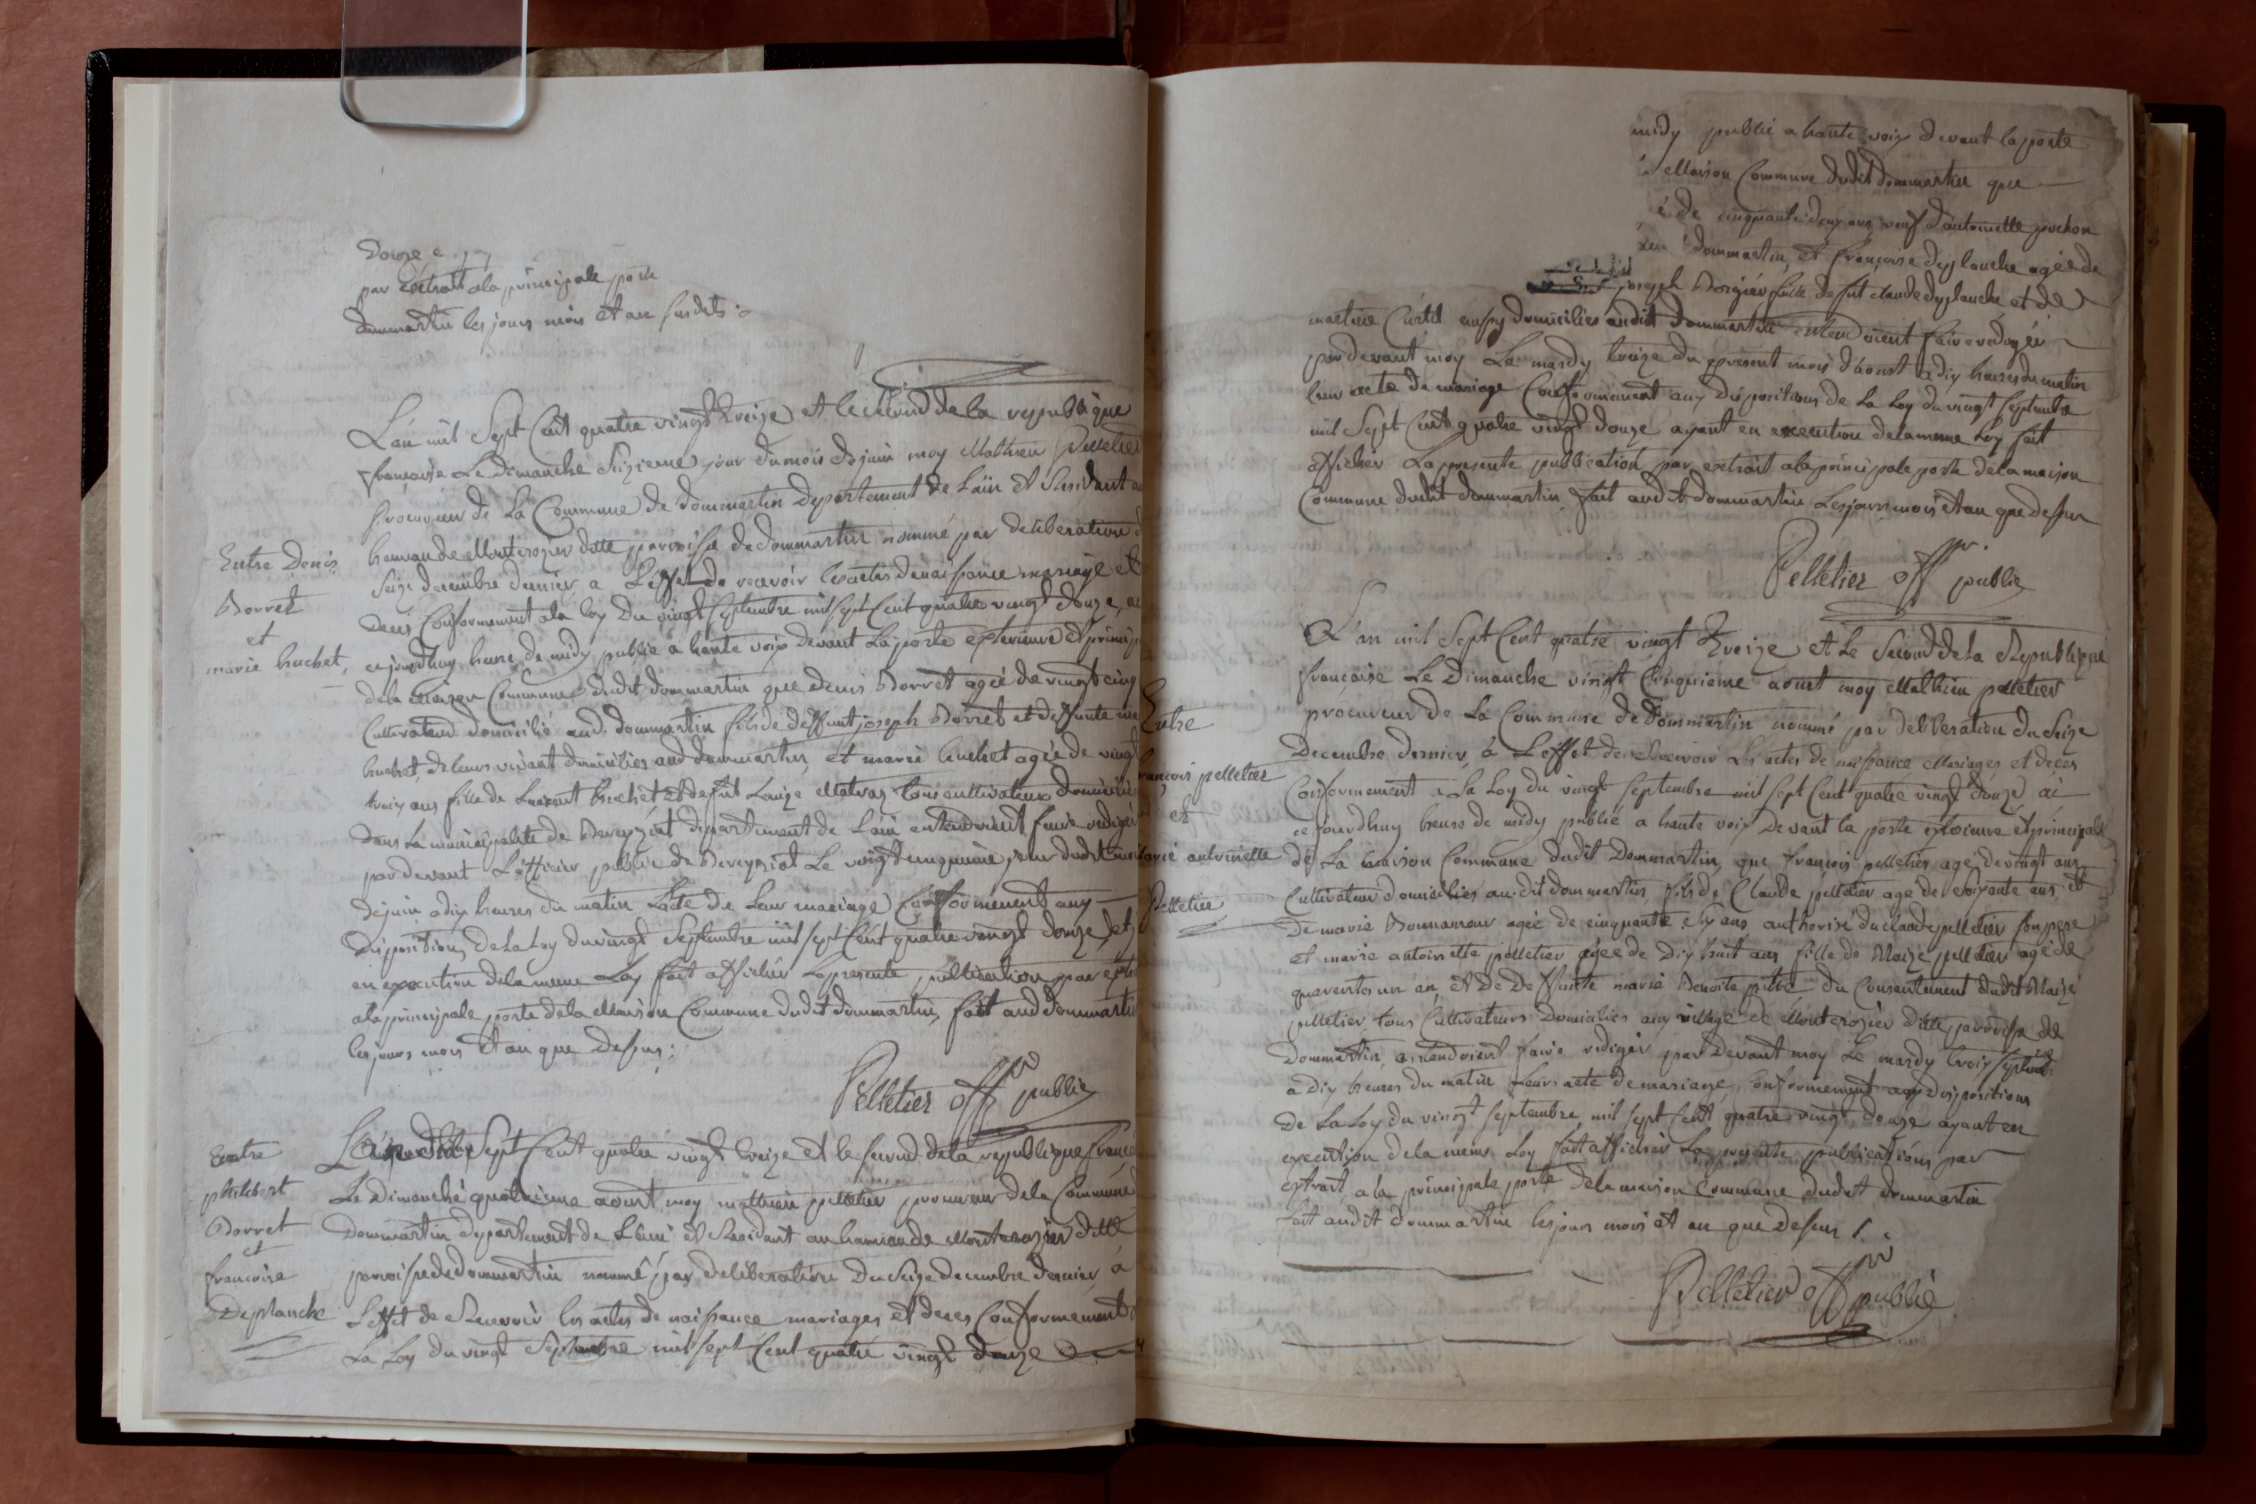 Douze
par Extrait ala principale porte
dommartin les jours mois Et an susdits
L'an mil Sept Cent quatre vingt treize et le second de la republique
françoise Le Dimanche Seizieme jour du mois de juin moy Mathieu Pelletier
procureur de La Commune de Dommartin Departement de Lain et Residant au
hameau de Monterozier ditte parroisse de Dommartin nommé par deliberation
Seize decembre dernier a Leffet de recevoir les actes de naissance mariage et
Deces Conformement ala loy Du vingt septembre mil sept Cent quatre vingt douze,
cejourdhuy heure de midy, publié a haute voix devant La porte exterieure et
dela Maison Commune dudit dommartin que denis Borret agé de vingt cinq
Cultivateur domicilié aud. dommartin fils de deffunt joseph Borret et deffunte
huchet, de leurs vivant domiciliés aud dommartin, et marie huchet agée de vingt
trois ans fille de Laurent huchet et de fut Louize Matraz tous cultivateurs domiciliés
Dans La municipalité de Bereyziat departement de Lain entendoient faire rediger
pardevant Lofficier public de Bereyziat Le vingt cinquieme jour dudit mois
de juin a dix heures du matin Lacte de Leur mariage Conformement aux
dispositions de La Loy du vingt Septembre mil sept Cent quatre vingt douze, et
en execution dela meme Loy fait afficher La presente publication par
ala principale porte dela Maison Commune dudit dommartin, fait aud dommartin
les jours mois Et an que Dessus:
Pelletier offr public
Entre Denis
Borret
et
marie huchet,
Sept Cent quatre vingt treize et le second dela republique
Le Dimanche quatrieme aoust, moy mathieu pelletier procureur dela Commune
Dommartin departement de Lain et Residant au hameau de Monterozier ditte
parroisse de dommartin nommé par deliberation Du Seize decembre dernier, a
Leffet de Recevoir les actes de naissance mariages et deces Conformement
La Loy du vingt Septembre mil sept Cent quatre vingt douze
Entre
philibert
Borret
et
françoise
Deplanche
midy publié a haute voix devant la porte
Maison Commune dudit dommartin que
de cinquante deux ans veuf d'antoinette pochon
dommartin, et françoise deplanche agée de
joseph Borgier fille de fut claude deplanche et de
martine Curtet aussy domiciliés audit Dommartin entendoient faire rédiger
pardevant moy Le mardy treize du present mois d'aoust a dix heures du matin
leur acte de mariage Conformement aux dispositions de La Loy du vingt septembre
mil Sept Cent quatre vingt douze ayant en execution dela meme Loy fait
afficher La presente publication par extrait ala principale porte dela maison
Commune dudit dommartin fait audit dommartin Les jours mois Et an que dessus
Pelletier offr. public
L'an mil Sept Cent quatre vingt treize et Le Second de La Republique
françoise Le Dimanche vingt Cinquieme aoust moy Mathieu pelletier
procureur de La Commune de Dommartin nommé par deliberation du Seize
Decembre dernier, à Leffet de Recevoir Les actes de naissance Mariages et deces
Conformement a La Loy du vingt Septembre mil sept Cent quatre vingt douze ai
ce jourdhuy heure de midy publié a haute voix devant la porte exterieure et principale
de La maison Commune dudit Dommartin, que françois pelletier agé de vingt ans
Cultivateur domiciliés audit dommartin fils de Claude pelletier age de soixante ans, et
De marie Bonnamour agée de cinquante six ans authorisé du claude pelletier son pere
et marie antoinette pelletier agée de Dix huit ans fille de Blaize pelletier agé de
quarente un an, Et de Deffunte marie Benoite pitre du Consentement dudit Blaize
pelletier tous Cultivateurs Domiciliés aux village de Monterozier ditte parroisse de
Dommartin entendoient faire rediger par Devant moy Le mardy trois septembre
a dix heures du matin Leurs acte de mariage, Conformement aux dispositions
De La Loy du vingt septembre mil sept cent quatre vingt douze ayant en
execution dela meme Loy fait afficher La presente publications par
extrait a la principale porte dela maison Commune dudit dommartin
fait audit dommartin les jours mois et an que dessus /.
Pelletier offr public
Entre
françois pelletier
et
marie antoinette
Pelletier